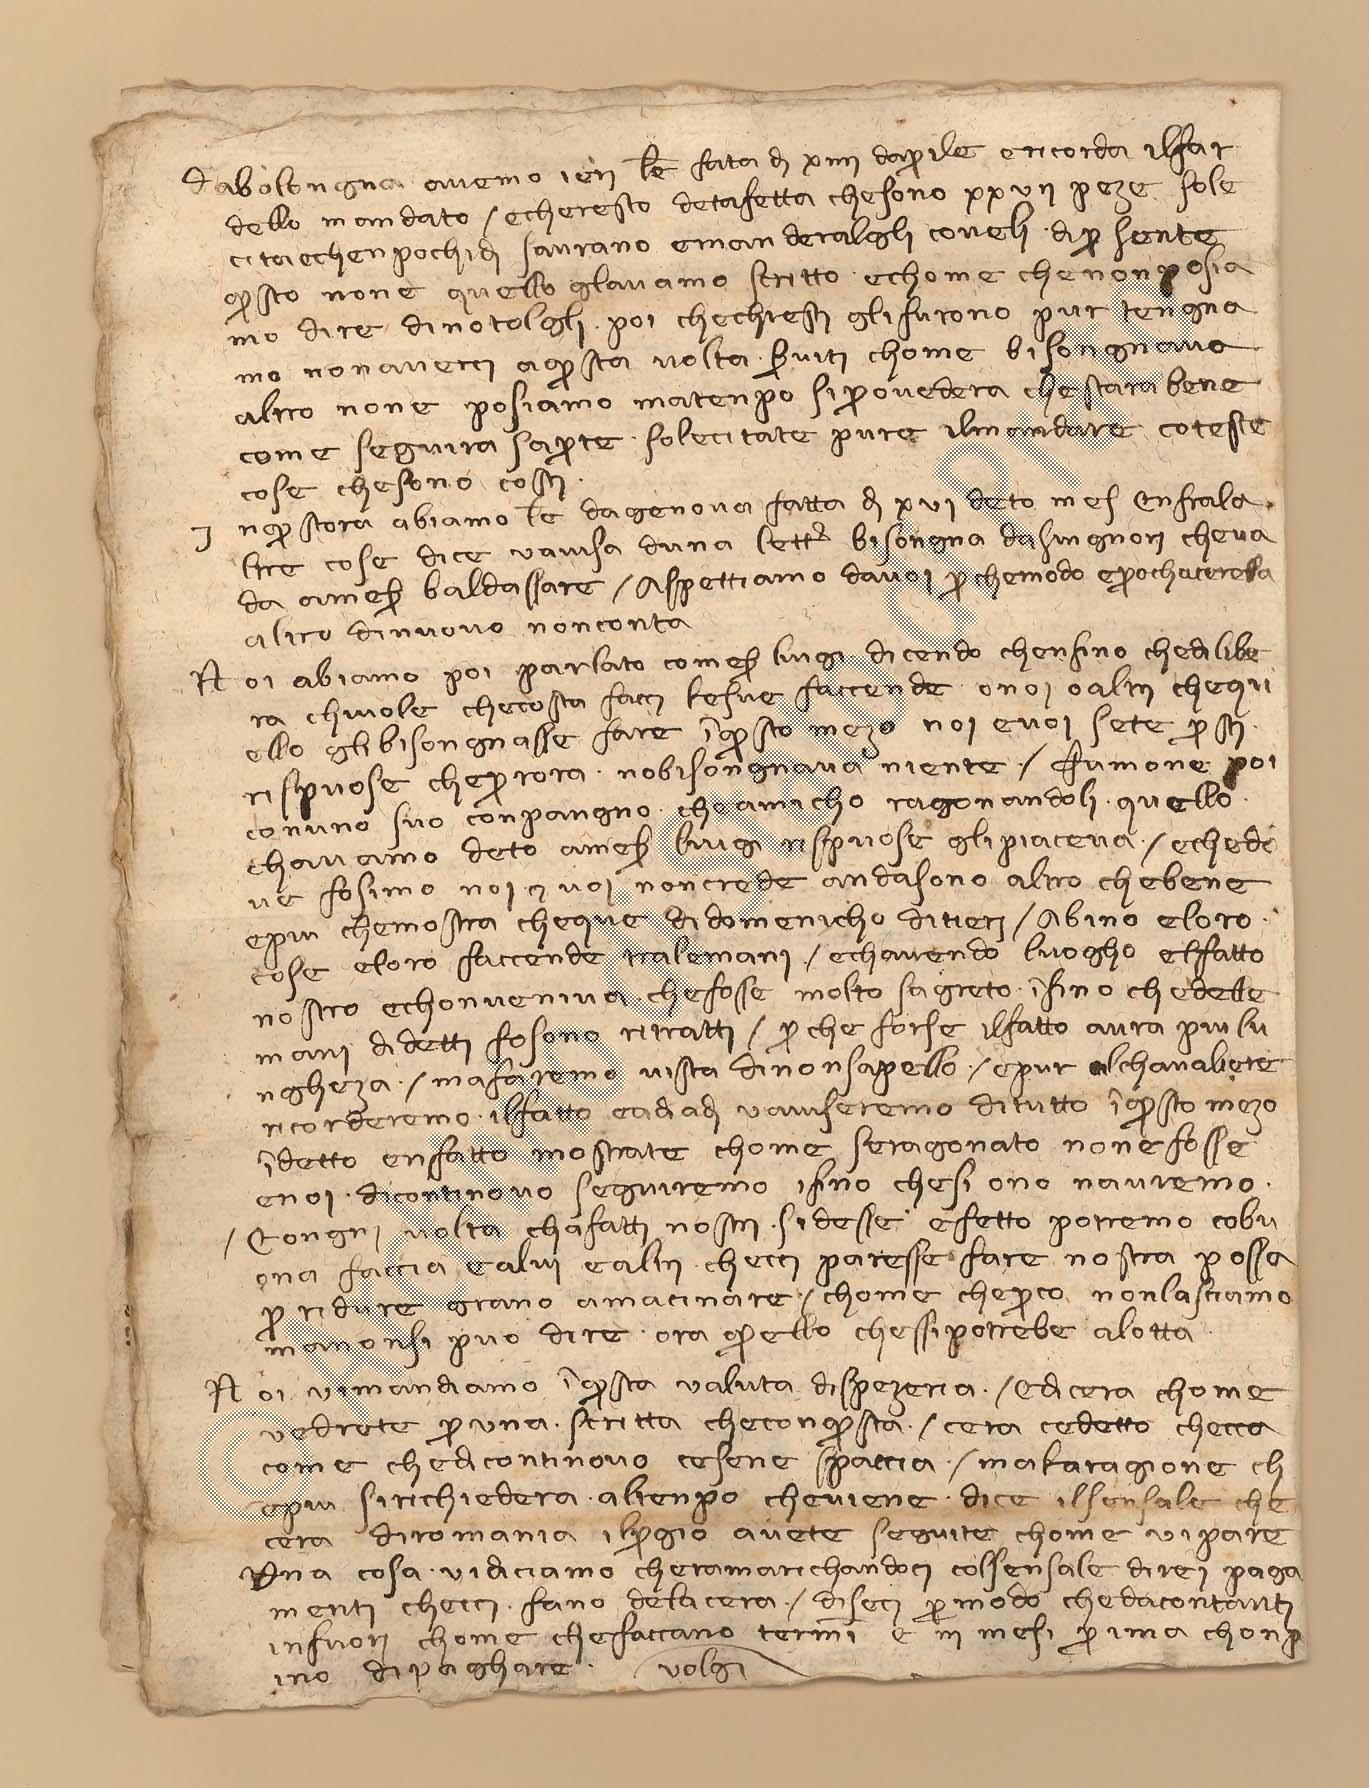 dabolongna avemo ieri lē fata dj xiiij daprile ericorda ilfar
dello mandato / echeresto detafetta chesono xxvij peze sole
citaechenpochidj savrano emanderalgli coveli dipresente
questo none quello glavamo scritto echome chenonposia
mo dire dinotolgli . poi chechiesti glifurono pur tengna
mo nonaverci aquesta volta serviti chome bisongnava
altro none posiamo matenpo siprovedera chestarabene
come seguira saprete . solecitate pure ilmandare coteste
cose chesono costi .
J nquestora abiamo lē dagenova fatta dj xvj deto mes Enfrala
ltre cose dice vavisa duna lettera bisongna dasingnori cheva
da amesser baldassare / Aspettiamo davoi perchemodo epochacierela
altro dinuovo nonconta
N oi abiamo poi parlato comesser luigi dicendo chensino chedilibe
ra chivole checosta facci lesue faccende onoi oaltri chequi
ello glibisongnasse fare īquesto mezo noi evoi sete presti .
rispuose cheperora . nobisongnava niente / Efumone poi
conuno suo conpangno . cheamicho ragonandoli . quello .
chavamo deto amesser luigi rispuose glipiaceva . / echedo
ve fosimo noi ci voi noncrede andasono altro chebene
epiu chemostra cheque didomenicho ditieri / Abino eloro .
cose eloro faccende tralemani . / echavendo luogho elfatto
nostro echonveniva . chefosse molto sagreto . īfino chedelle
mani didetti fosono ritratti / perche forse ilfatto avra piulu
ngheza . / mafaremo vista dinonsapello . / epur alchanabete
ricorderemo . ilfatto eadiadj vaviseremo ditutto īquesto mezo
īdetto enfatto mostrate chome seragonato none fosse
enoi . dicontinovo seguiremo ifino chesi ono navremo .
/ Eongni volta chafatti nostri . sidesse efetto potremo cobu
ona faccia ealui ealtri . checci paresse fare nostra possa
per ridure grano amacinare / chome cheperco nonlasciamo
manonsi puo dire . ora quello chessipotrebe alotta .
N oi vimandiamo īquesta valuta dispezeria . / Edicera chome
vedrete peruna . scritta checonquesta . / cera cedetto checca
come chedicontinovo cesene spaccia . / makaragione ch
epiu sirichiedera . altenpo cheviene . dice ilsensale che
cera diromania ilpregio avete seguite chome vipare
Una cosa . vidiciamo cheramarichandoci colsensale direi paga
menti checci . fano delacera . / diseci permodo chedacontanti
infuori chome chefaccano termī e iij mesi prima chonp
ino dipaghare . volgi